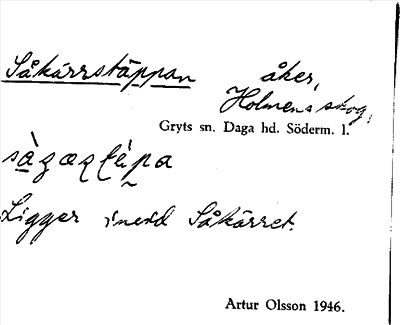 Såkärrstäppan åker,
Holmens skog,
Gryts sn. Daga hd. Söderm. l.
Ligger invid Såkärret.
Artur Olsson 1946.